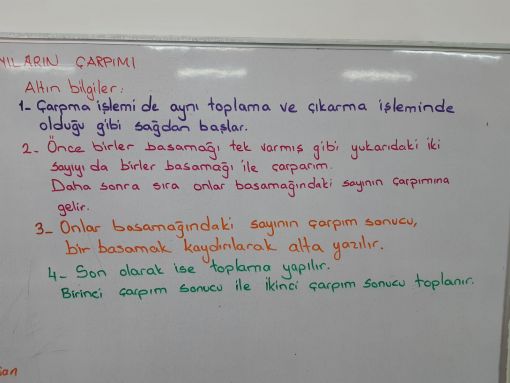 YILARIN ÇARPIMI
Altın bilgiler:
1- Çarpma işlemi de aynı toplama ve çıkarma işleminde
olduğu gibi sağdan başlar.
2- Önce birler basamağı tek varmış gibi yukarıdaki iki
sayıyı da birler basamağı ile çarparım.
Daha sonra sıra onlar basamağındaki sayının çarpımına
gelir.
3- Onlar basamağındaki sayının çarpım sonucu,
bir basamak kaydırılarak alta yazılır.
4- Son olarak ise toplama yapılır.
Birinci çarpım sonucu ile ikinci çarpım sonucu toplanır.